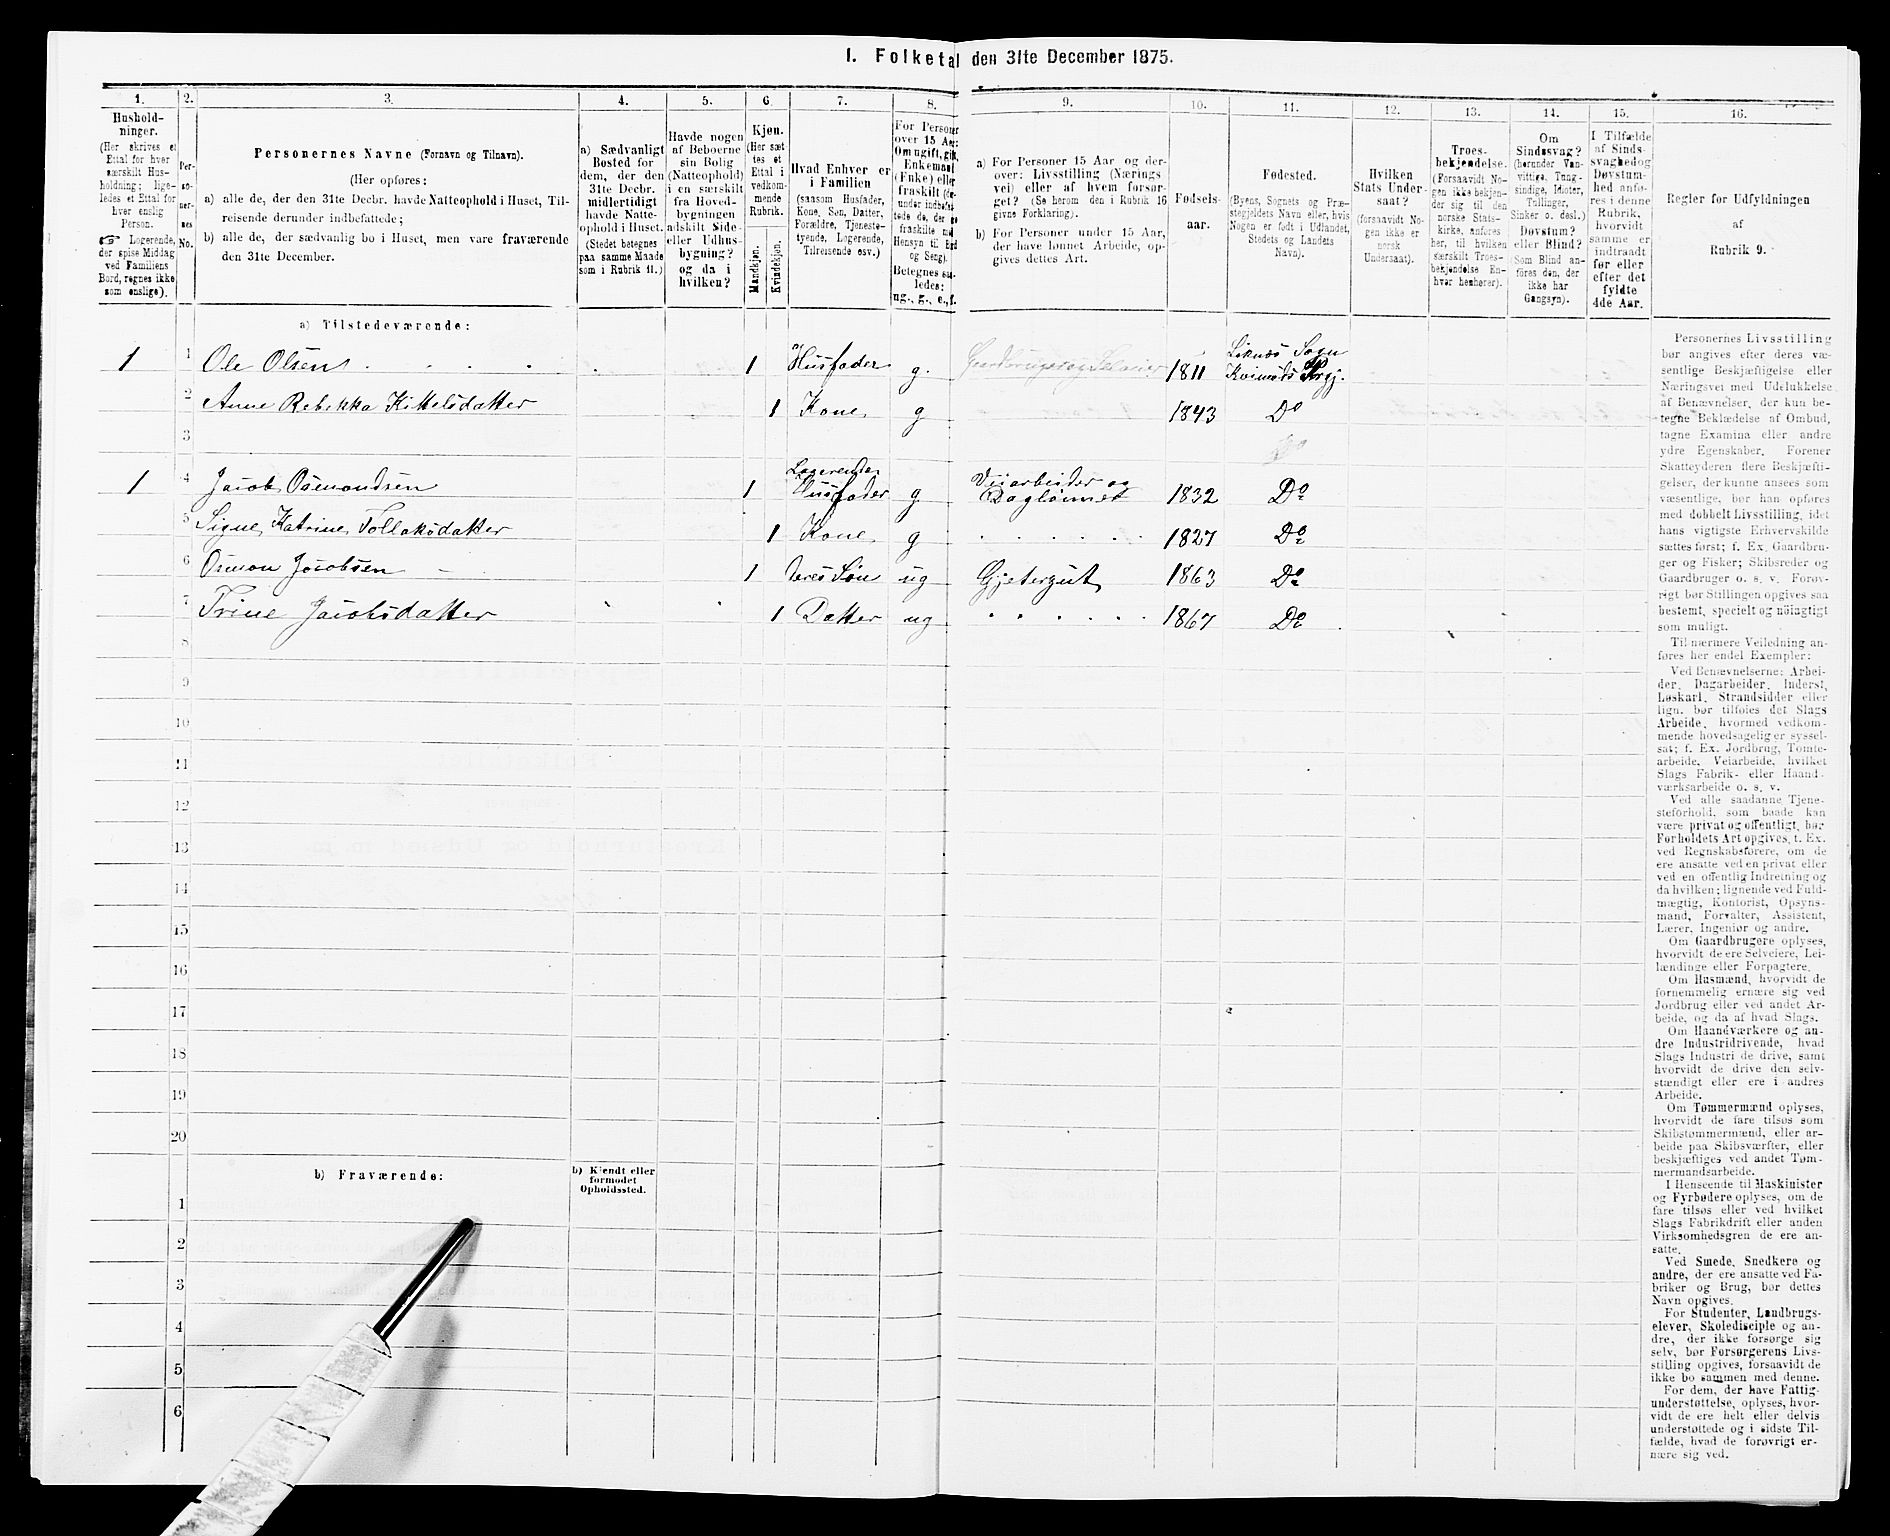 I. Folketal den 31te December 1875.
1. 2. 3. 4. 5. 6. 7. 8. 9. 10. 11. 12. 13. 14. 15. 16.
Hushold-
ninger.
(Her skrives et
Ettal for hver
særskilt Hus-
holdning; lige-
ledes et Ettal for
hver enslig
Person.
☞ Logerende,
der spise Middag
ved Familiens
Bord, regnes ikke
som enslige).
Per-
so-
ner-
nes
No.
Personernes Navne (Fornavn og Tilnavn).
(Her opføres:
a) alle de, der den 31te Decbr. havde Natteophold i Huset, Til-
reisende derunder indbefattede;
b) alle de, der sædvanlig bo i Huset, men vare fraværende
den 31te December.
a) Sædvanligt
Bosted for
dem, der den
31te Decbr.
midlertidigt
havde Natte-
ophold i Huset.
(Stedet betegnes
paa samme Maade
som i Rubrik 11.)
Havde nogen
af Beboerne
sin Bolig
(Natteophold)
i en særskilt
fra Hoved-
bygningen
adskilt Side-
eller Udhus-
bygning?
og da i
hvilken?
Kjøn.
(Her sæt-
tes et
Ettal i
vedkom-
mende
Rubrik.
Mandkjøn.
Kvindekjøn.
Hvad Enhver er
i Familien
(saasom Husfader,
Kone, Søn, Datter,
Forældre, Tjeneste-
tyende, Logerende,
Tilreisende osv.)
For Personer
over 15 Aar:
Om ugift, gift,
Enkemand
(Enke) eller
fraskilt
Betegnes saa-
ledes:
ug., g., e., f.
a) For Personer 15 Aar og der-
over: Livsstilling (Nærings-
vei) eller af hvem forsør-
get? (Se herom den i Rubrik 16
givne Forklaring).
b) For Personer under 15 Aar,
der have lønnet Arbeide, op-
gives dettes Art.
Fødsels-
aar.
Fødested.
(Byens, Sognets og Præ-
stegjeldets Navn eller, hvis
Nogen er født i Udlandet,
Stedets og Landets
Navn).
Hvilken
Stats Under-
saat?
(forsaavidt No-
gen ikke er
norsk
Undersaat).
Troes-
bekjendelse.
(Forsaavidt No-
gen ikke bekjen-
der sig til den
norske Stats-
kirke, anføres
her, til hvilken
særskilt Troes-
bekjendelse En-
hver henhører).
Om
Sindssvag?
(herunder Van-
vittige, Tung-
sindige, Idioter,
Tullinger,
Sinker o. desl.)
Døvstum?
eller Blind?
(Som Blind an-
føres den, der
ikke har
Gangsyn).
I Tilfælde
af Sinds-
svaghed og
Døvstum-
hed anfø-
res i denne
Rubrik,
hvorvidt
samme er
indtraadt
før eller
efter det
fyldte
4de Aar.
Regler for Udfyldningen
af
Rubrik 9.
a) Tilstedeværende:
1 1 Ole Olsen 1 Husfader g. Gaardbruger og Selveier 1811 Liknes Sogn
Kvineds Prgj.
2 Anne Rebekka Kittelsdatter 1 Kone g 1843 Do
3
1 4 Jacob Osmondsen 1 Logerende
Husfader g Veiarbeider og
Daglønnet 1832 Do
5 Signe Katrine Tollaksdatter 1 Kone g 1827 Do
6 Osmon Jacobsen 1 deres Søn ug Gjetergut 1863 Do
7 Trine Jacobsdatter 1 Datter ug 1867 Do
8
9
10
11
12
13
14
15
16
17
18
19
20
b) Fraværende:
b) Kjendt eller
formodet
Opholdssted.
1
2
3
4
5
6
Personernes Livsstilling
bør angives efter deres væ-
sentlige Beskjæftigelse eller
Næringsvei med Udelukkelse
af Benævnelser, der kun be-
tegne Beklædelse af Ombud,
tagne Examina eller andre
ydre Egenskaber. Forener
Skatteyderen flere Beskjæfti-
gelser, der kunne ansees som
væsentlige, bør han opføres
med dobbelt Livsstilling, idet
hans vigtigste Erhvervskilde
sættes først; f. Ex. Gaardbru-
ger og Fisker; Skibsreder og
Gaardbruger o. s. v. Forøv-
rigt bør Stillingen opgives saa
bestemt, specielt og nøiagtigt
som muligt.
Til nærmere Veiledning an-
føres her endel Exempler:
Ved Benævnelserne: Arbei-
der, Dagarbeider, Inderst,
Løskarl, Strandsidder eller
lign. bør tilføies det Slags
Arbeide, hvormed vedkom-
mende hovedsagelig er syssel-
sat; f. Ex. Jordbrug, Tomte-
arbeide, Veiarbeide, hvilket
Slags Fabrik- eller Haand-
værksarbeide o. s. v.
Ved alle saadanne Tjene-
steforhold, som baade kan
være privat og offentligt, bør
Forholdets Art opgives, t. Ex.
ved Regnskabsførere, om de
ere ansatte ved en privat eller
ved en offentlig Indretning og
da hvilken; lignende ved Fuld-
mægtig, Kontorist, Opsyns-
mand, Forvalter, Assistent,
Lærer, Ingeniør og andre.
Om Gaardbrugere oplyses,
hvorvidt de ere Selveiere, Lei-
lændinge eller Forpagtere.
Om Husmænd, hvorvidt de
fornemmelig ernære sig ved
Jordbrug eller ved andet Ar-
beide, og da af hvad Slags.
Om Haandværkere og an-
dre Industridrivende, hvad
Slags Industri de drive, samt
hvorvidt de drive den selv-
stændigt eller ere i andres
Arbeide.
Om Tømmermænd oplyses,
hvorvidt de fare tilsøs som
Skibstømmermænd, eller ar-
beide paa Skibsværfter, eller
beskjæftiges ved andet Tøm-
mermandsarbeide.
I Henseende til Maskinister
og Fyrbødere oplyses, om de
fare tilsøs eller ved hvilket
Slags Fabrikdrift eller anden
Virksomhedsgren de ere an-
satte.
Ved Smede, Snedkere og
andre, der ere ansatte ved Fa-
briker og Brug, bør dettes
Navn opgives.
For Studenter, Landbrugs-
elever, Skoledisciple og an-
dre, der ikke forsørge sig
selv, bør Forsørgerens Livs-
stilling opgives, forsaavidt de
ikke bo sammen med denne.
For dem, der have Fattig-
understøttelse, oplyses, hvor-
vidt de ere helt eller delvis
understøttede og i sidste Til-
fælde, hvad de forøvrigt er-
nære sig ved.